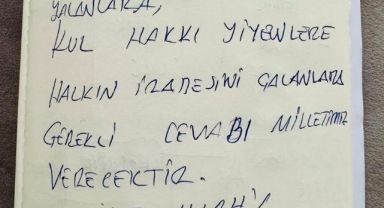 YALANLARA,
KUL HAKKI YİYENLERE
HALKIN İRADESİNİ ÇALANLARA
GEREKLİ CEVABI MİLLETİMİZ
VERECEKTİR.